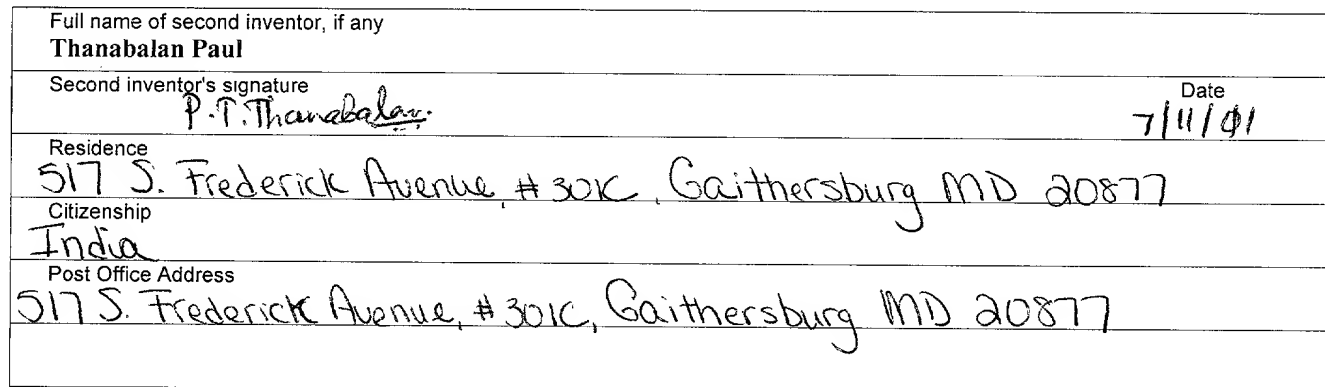 Full name of second inventor, if any
Thanabalan Paul
Second inventor's signature Date
P.T.Thanabalan. 7/11/01
Residence
517 S. Frederick Avenue, # 301C, Gaithersburg MD 20877
Citizenship
India
Post Office Address
517 S. Frederick Avenue, # 301C, Gaithersburg MD 20877